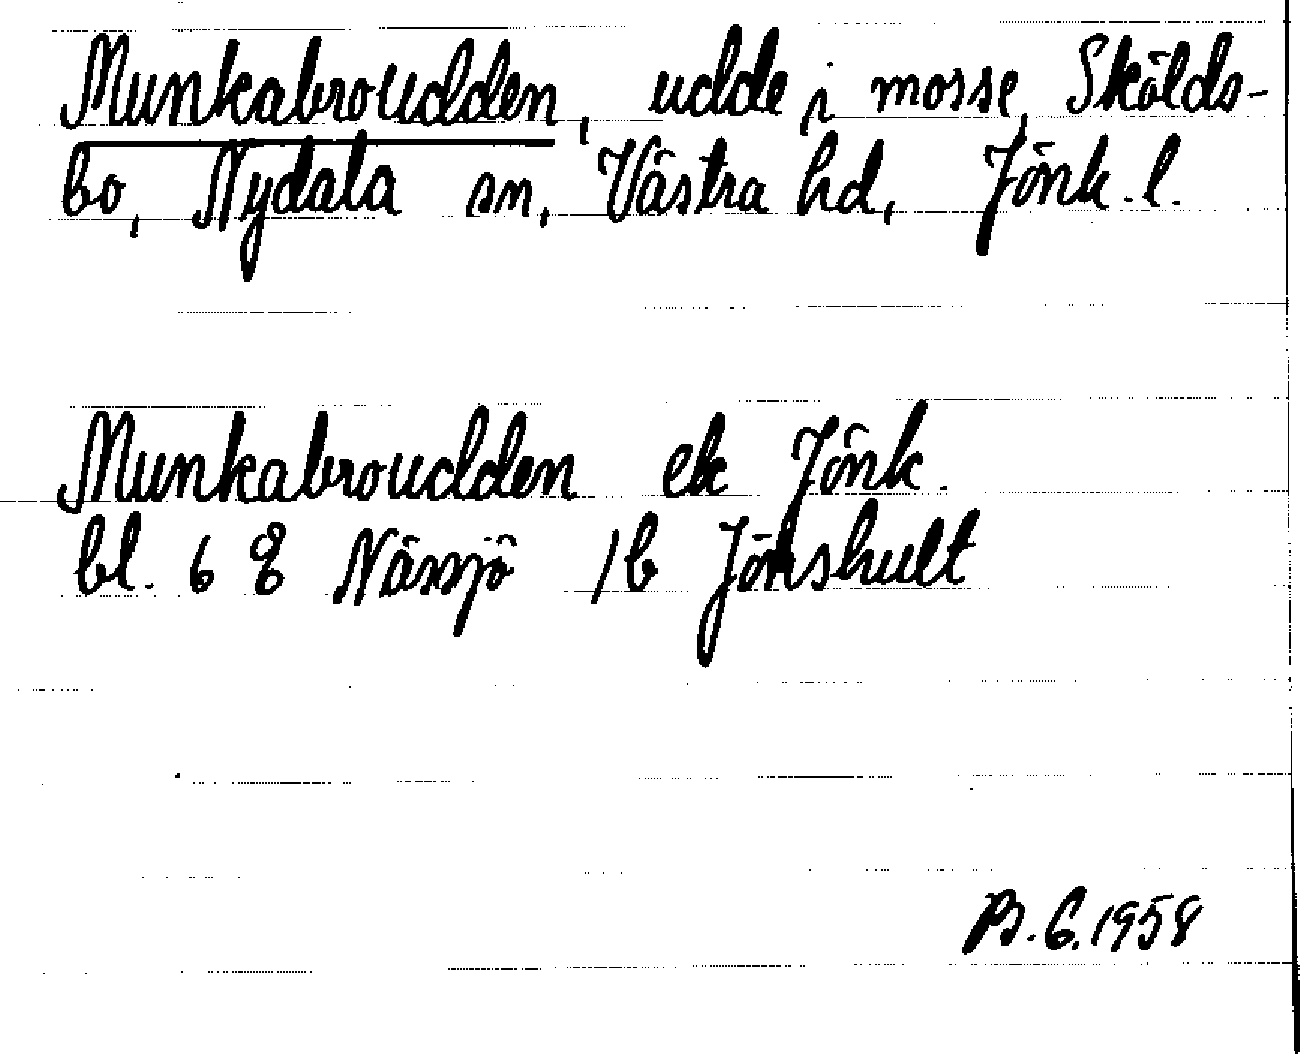 Munkabroudden, udde i mosse, Skölds-
bo, Nydala sn, Västra hd, Jönk. l.
Munkabroudden ek Jönk.
bl. 6 8 Nässjö 1b Jönshult
B. G. 1958